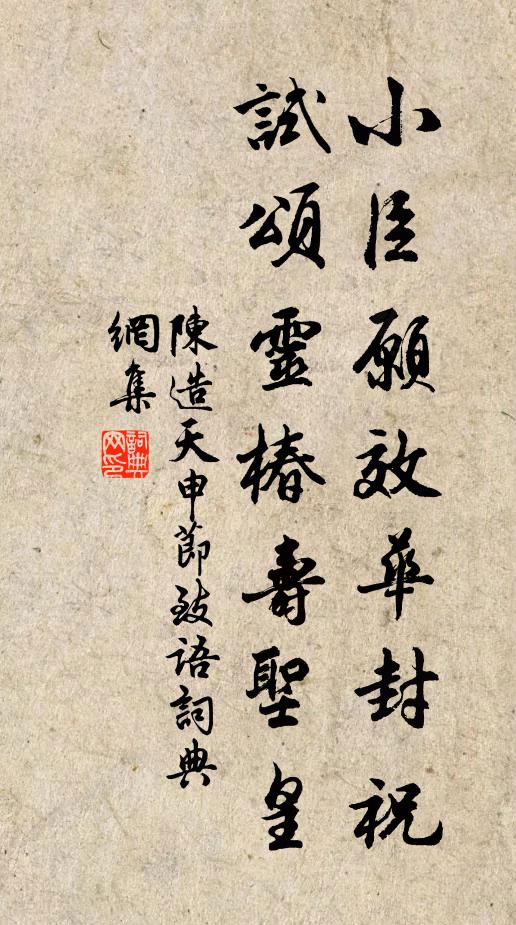 小臣願效華封祝
試頌靈椿壽聖皇
陳造天申節致語詞典
網集
詞典网印